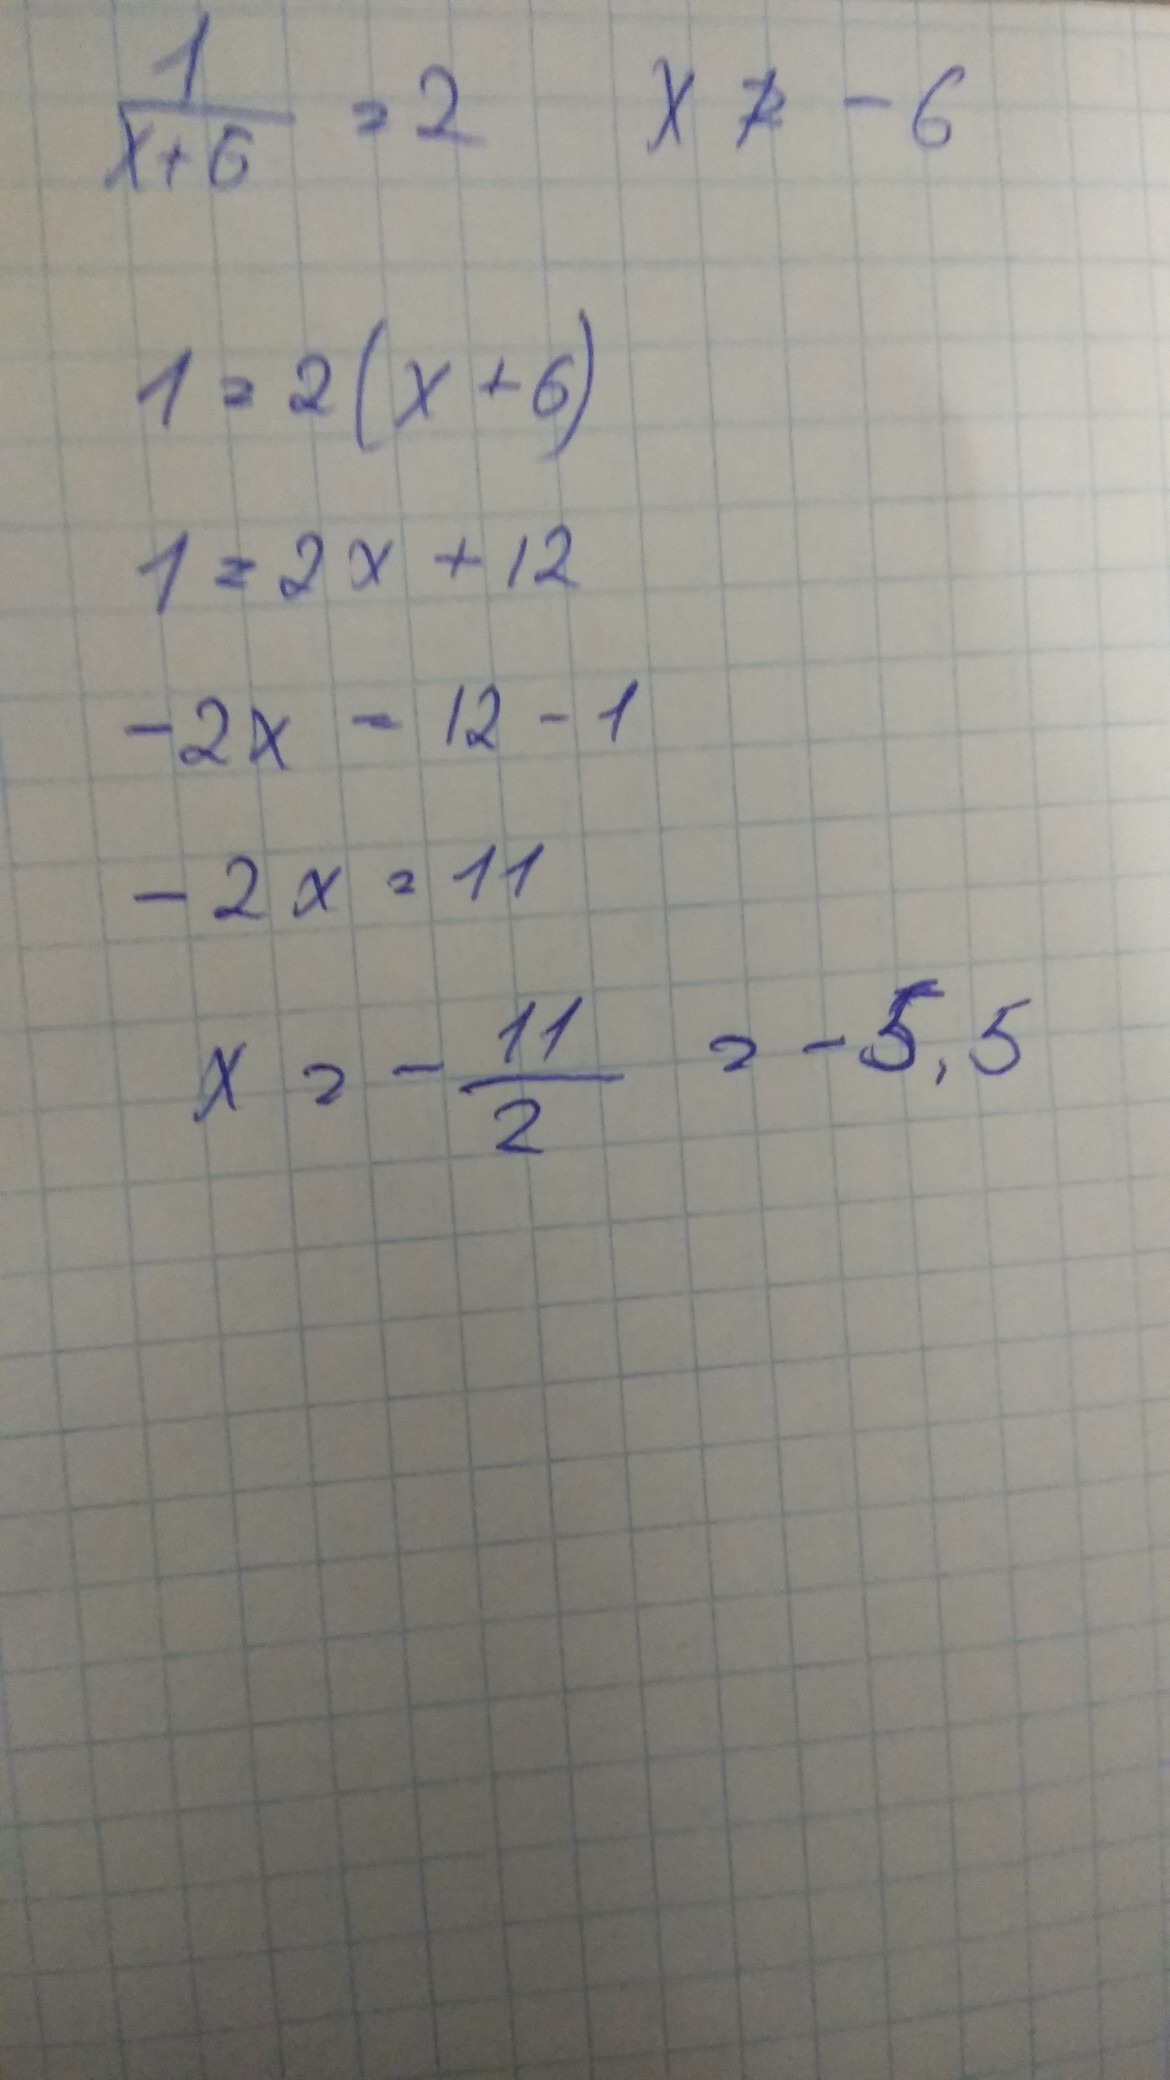 1/(x+6) = 2   x ≠ -6
1 = 2(x+6)
1 = 2x + 12
-2x = 12 - 1
-2x = 11
x = - 11/2 = -5,5